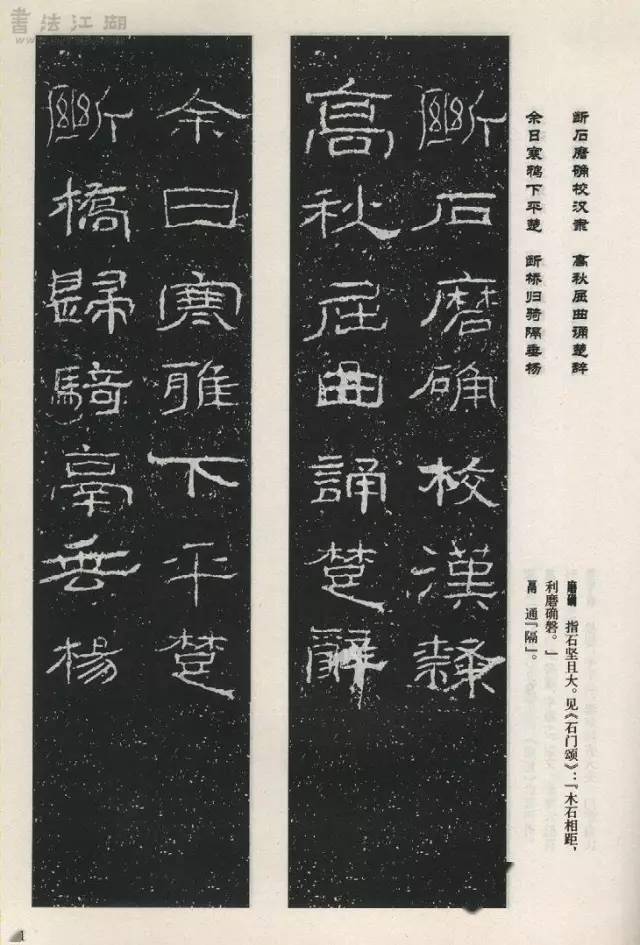 書法江湖
断石磨确校汉隶 高秋屈曲诵楚辞
余日寒鸦下平楚 断桥归骑隔垂杨
磨确 指石坚且大。见《石门颂》：『木石相距，
利磨确磐。』
鬲 通『隔』。
斷石磨确校漢隸
高秋屈曲誦楚辭
余日寒雅下平楚
斷橋歸騎鬲垂楊
1